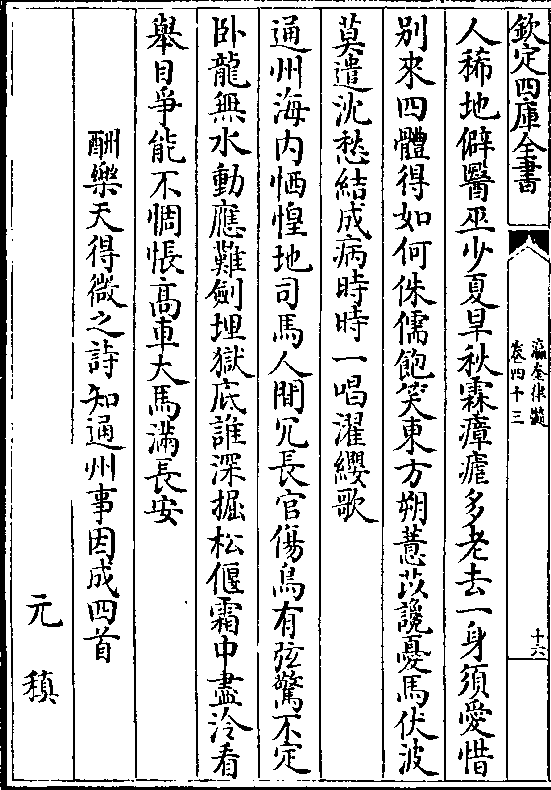 欽定四庫全書
瀛奎律髓
卷四十三
十六
人稀地僻醫巫少夏旱秋霖瘴瘧多老去一身須愛惜
别來四體得如何侏儒飽笑東方朔薏苡讒憂馬伏波
莫遣沈愁結成病時時一唱濯纓歌
通州海内恓惶地司馬人間冗長官傷鳥有弦驚不定
卧龍無水動應難劍埋獄底誰深掘松偃霜中盡泠看
舉目爭能不惆悵高車大馬滿長安
酬樂天得微之詩知通州事因成四首
元稹